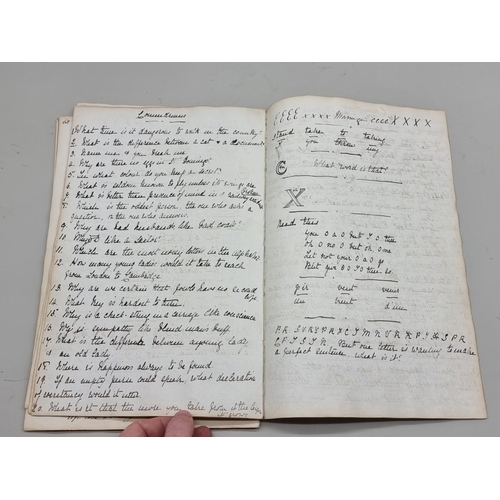 Conundrums
1. What time is it dangerous to walk in the country
2. What is the difference between a cat & a document
3. Name me & you break me
4. Why are there no eggs in St Domingo
5. In what colour do you keep a secret?
6. What is seldom known to fly unless its wings are broken
7. What is better than presence of mind in a railway accident
8. Which is the oldest person the one who asks a
question, or the one who answers.
9. Why are bad husbands like bad coals?
10. Why is C like a sailor?
11. Which are the most noisy letters in the alphabet
12. How many young ladies would it take to reach
from London to Cambridge.
13. Why are we certain that fowls have no second
life
14. What Key is hardest to turn.
15. Why is a chest string in a like conscience
16. Why is sympathy like blind mans buff.
17. What is the difference between a young lady
& an old lady.
18. Where is Happiness always to be found.
19. If an empty purse could speak, what declaration
of constancy would it utter
20. What is it that the more you take from it the larger
it grows
E E E E x x x x Marriage c c c c X X X X
stand take to taking
I you throw my
G What word is that?
X
Read this
You O a O but I O thee
Oh O no O but oh O me
Let not your O a O go
But give O O I O thee so.
pir vent venir
un vient d'un
P R S V R Y P R F C T M N V R K P T H S P R
C P T S T N. But one letter is wanting to make
a perfect sentence what is it?